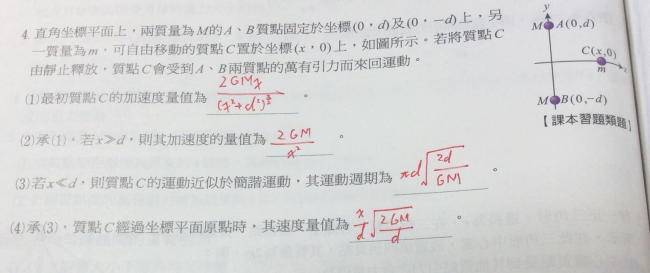 4. 直角坐標平面上，兩質量為M的A、B質點固定於坐標(0，d)及(0，-d)上，另
一質量為m，可自由移動的質點C置於坐標(x，0)上，如圖所示。若將質點C
由靜止釋放，質點C會受到A、B兩質點的萬有引力而來回運動。
(1)最初質點C的加速度量值為 2GMx/(x²+d²)^(3/2) 。
(2)承(1)，若x≫d，則其加速度的量值為 2GM/x² 。
(3)若x≪d，則質點C的運動近似於簡諧運動，其運動週期為 πd√(2d/GM) 。
(4)承(3)，質點C經過坐標平面原點時，其速度量值為 x/d √(2GM/d) 。
y
M A(0,d)
C(x,0)
x
m
M B(0,-d)
【課本習題類題】